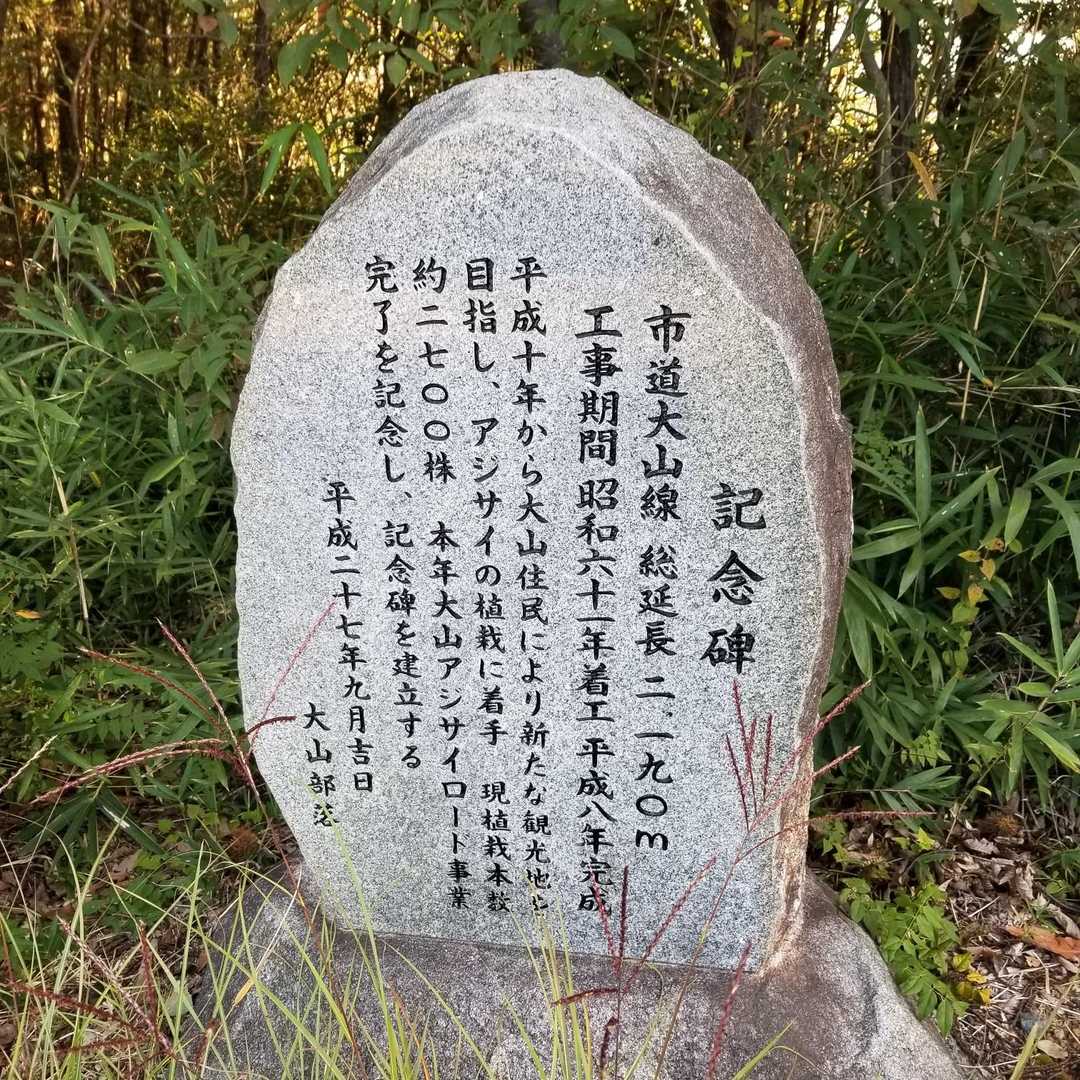 記念碑
市道大山線 総延長 二、一九〇m
工事期間 昭和六十一年着工 平成八年完成
平成十年から大山住民により新たな観光地を
目指し、アジサイの植栽に着手 現植栽本数
約二七〇〇株 本年大山アジサイロード事業
完了を記念し、記念碑を建立する
平成二十七年九月吉日
大山部落